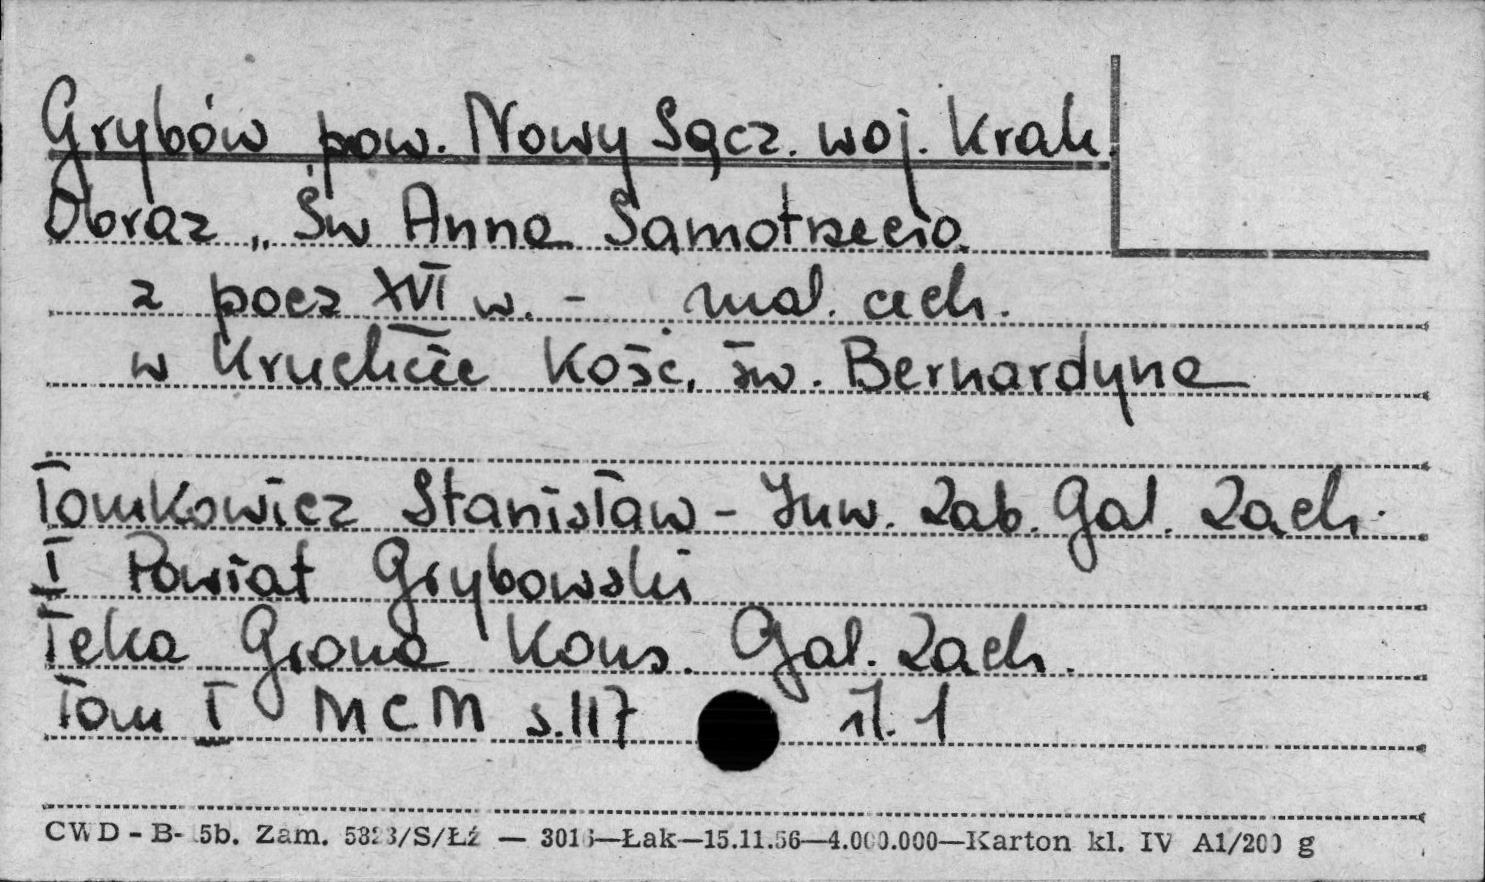 Grybów pow. Nowy Sącz. woj. Krak.
Obraz „ Św Anna Samotrzecia
z pocz XVI w. - mal. cech.
w Kruchcie Kośc. św. Bernardyna
Tomkowicz Stanisław - Inw. Zab. Gal. Zach.
I Powiat Grybowski
Teka Grona Kons. Gal. Zach.
Tom I MCM s. 117 il. 1
CWD - B- 5b. Zam. 5823/S/Łź — 3016—Łak—15.11.56—4.000.000—Karton kl. IV A1/200 g